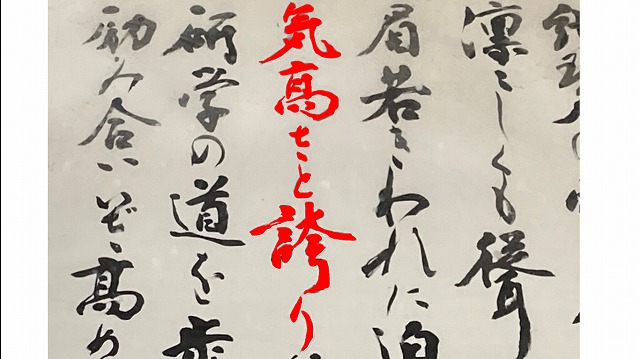 凛々しくも聳
眉若きわれに
気高さと誇り
研学の道を歩
励み合いいざ高め